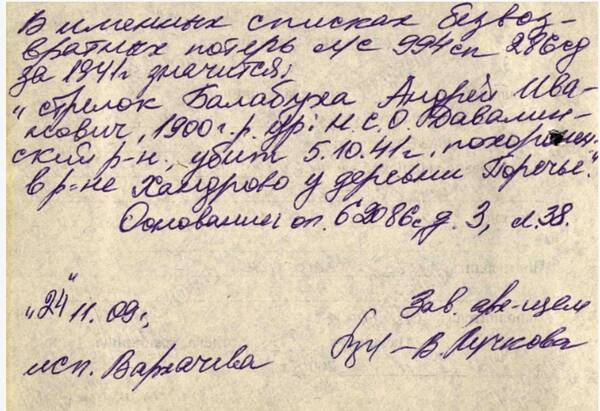 В именных списках безвоз-
вратных потерь л/с 994сп 286сд
за 1941г значится:
"стрелок Балабуха Андрей Ива-
нович, 1900г.р. ур: Н.С.О.
ский р-н, убит 5.10.41г. похоронен
в р-не Хандрово у деревни Поречье."
Основание: оп. 62086с, д. 3, л. 38.
"24" 11. 09г.,
Зав. арх-щем
исп. Вархачева
В. Лучкова